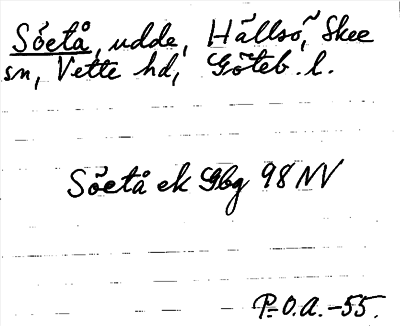 Söetå, udde, Hällsö, Skee
sn, Vette hd, Göteb. l.
Söetå ek Gbg 98 NV
P.O.A. -55.